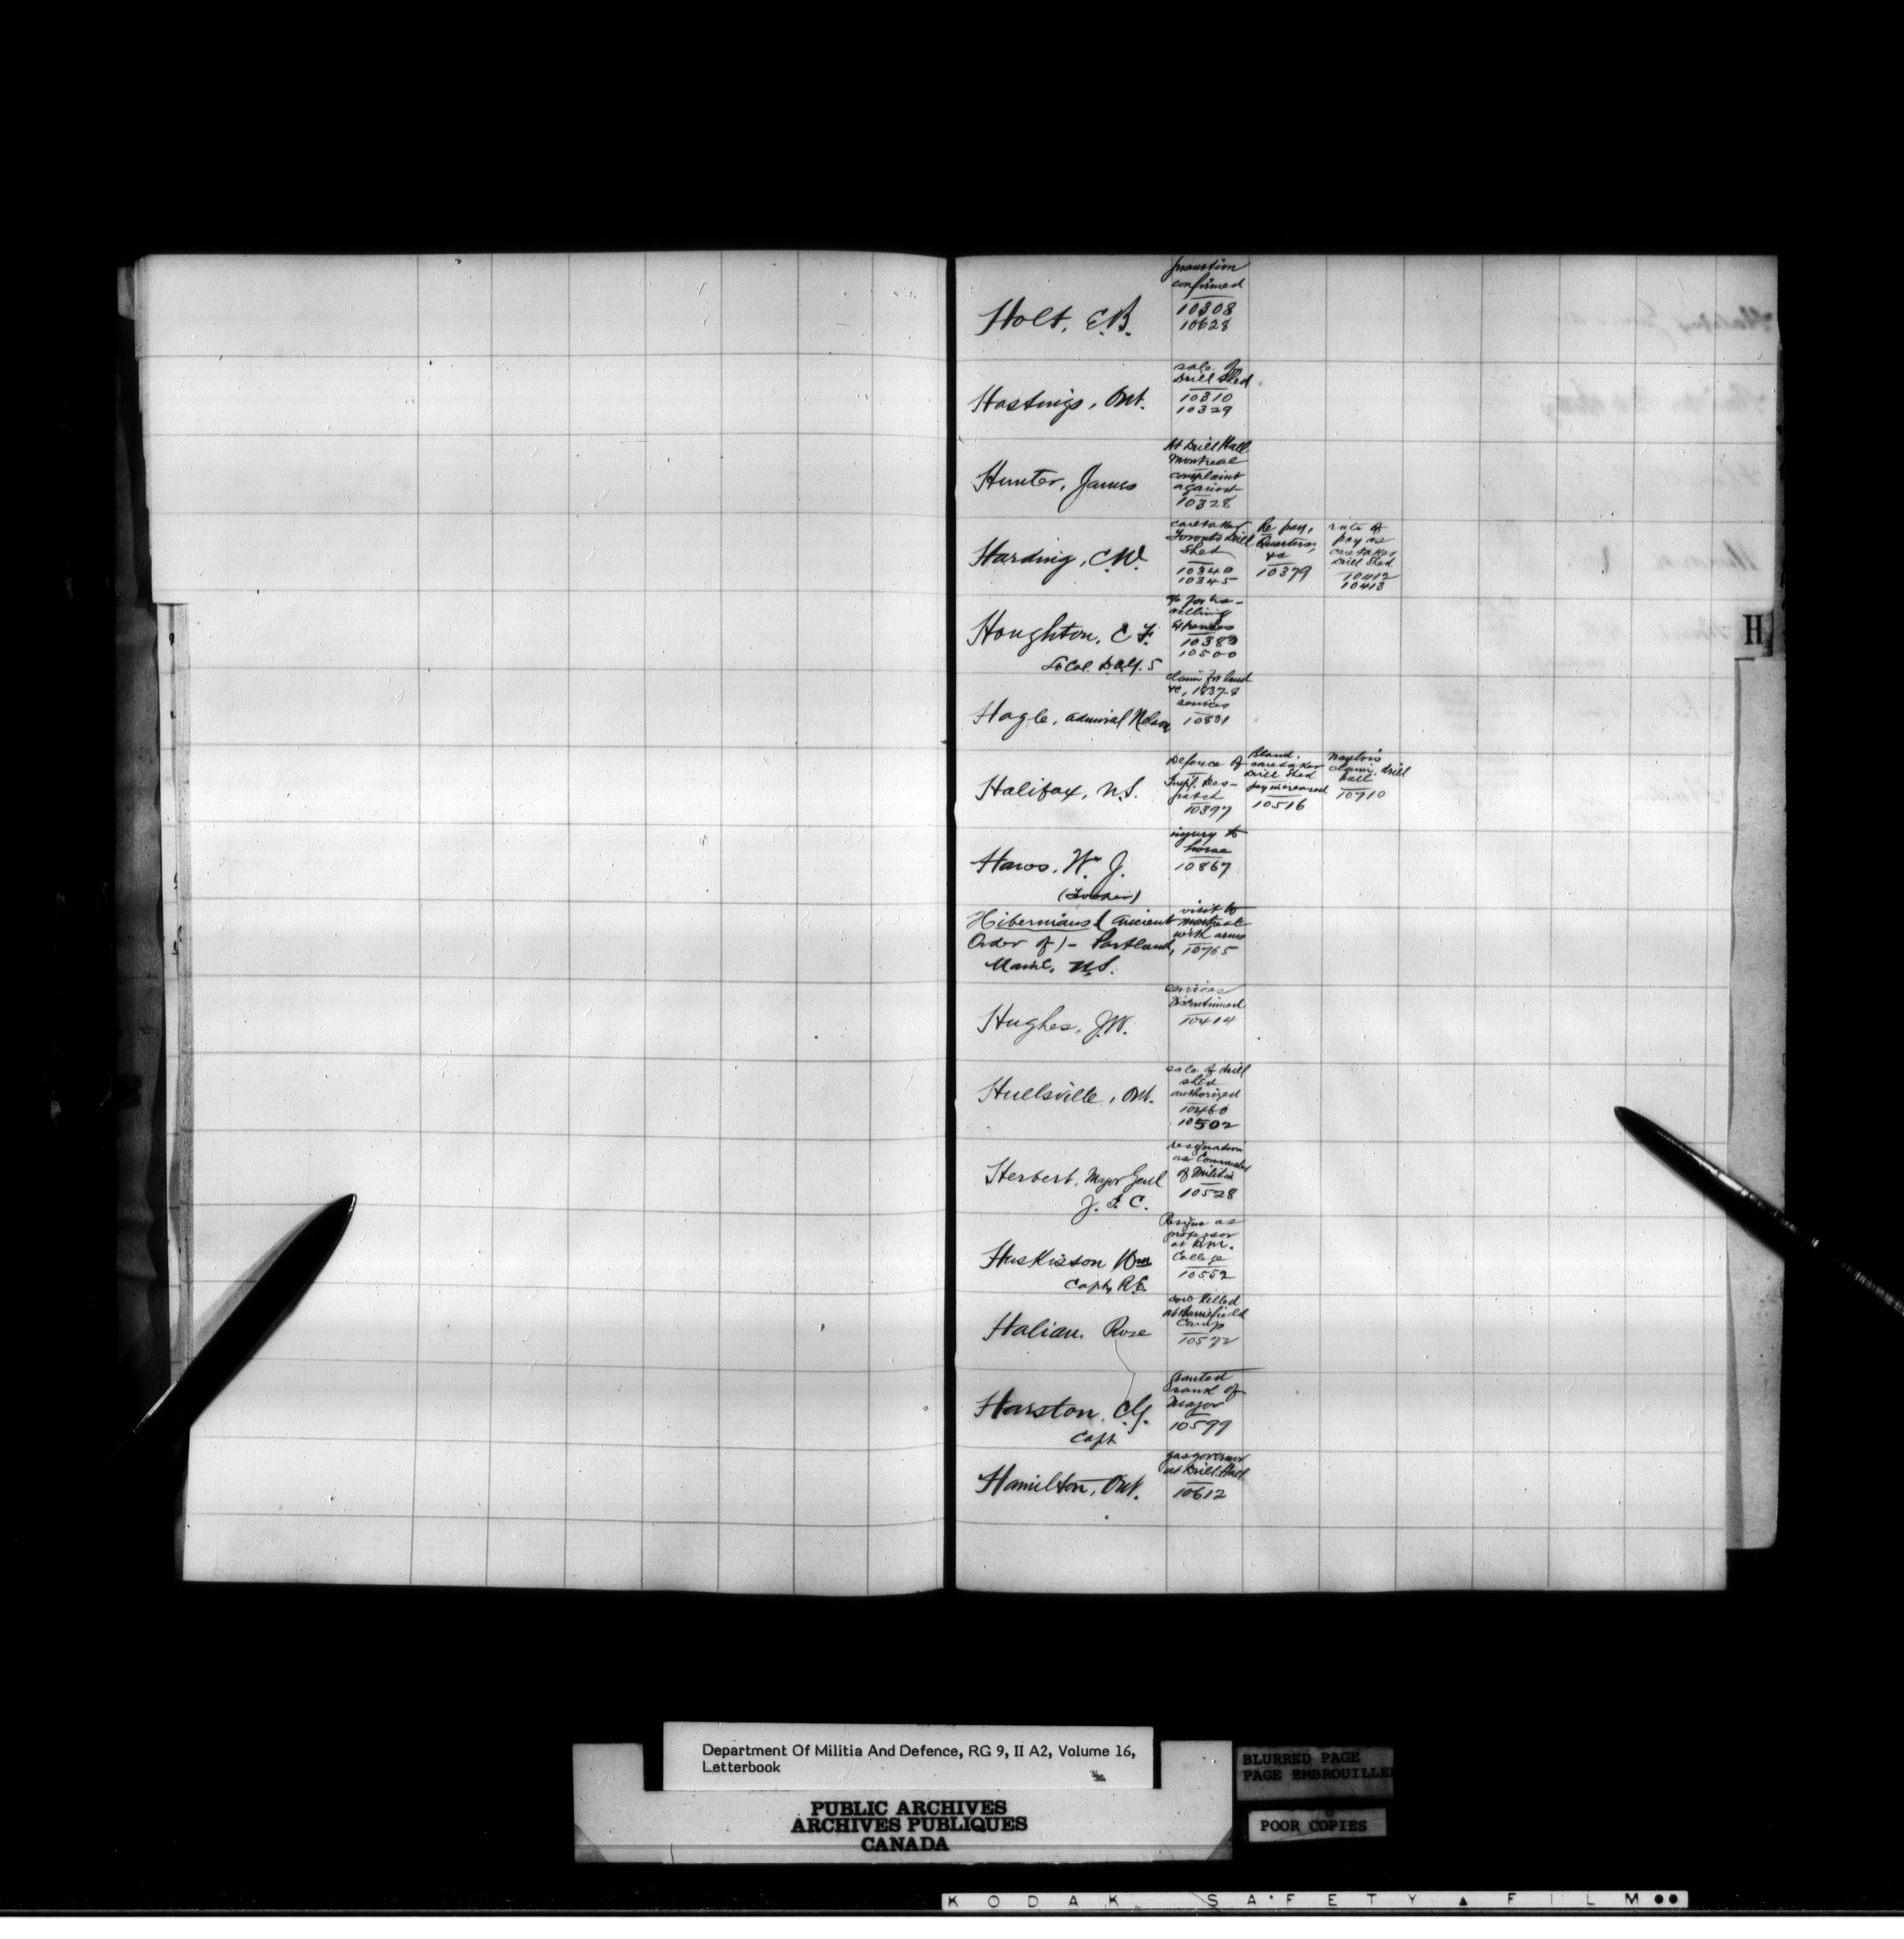 Holt, E.B.
promotion
confirmed
10308
10628
Hastings, Ont.
sale of
Drill Shed
10310
10329
Hunter, James
At Drill Hall
Montreal
complaint
against
10328
Harding, C.W.
caretaker
Toronto Drill
Shed
10340
10345
Re pay,
Quarters,
&c
10379
rate of
pay as
caretaker
Drill Shed
10412
10413
Houghton, C.F.
Lt Col. D.A.G. 5
a/c for tra-
velling
Expenses
10500
Hagle, Admiral Nelson
claim for land
&c, 1837-8
services
Halifax, N.S.
Defence of
Impl. Des-
patch
10397
Bland,
caretaker
Drill Shed
pay increased
10516
claim, drill
hall
10710
Haws, Wm J.
injury to
horse
10867
Hibernians (Ancient
Order of) - Portland,
Maine, U.S.
visit to
Montreal
with arms
10765
Hughes, J.W.
services
Discontinued
10414
Hullsville, Ont.
sale of drill
shed
authorized
10460
10502
Herbert, Major Genl
J. C.
resignation
as Commander
of Militia
10528
Huskisson Wm
Capt, R.E.
Resigns as
professor
at R.M.
College
10552
Halian. Rose
cow killed
at Barriefield
Camp
10572
Harston, C.G.
Capt
granted
rank of
Major
10599
Hamilton, Ont.
gas governor
at Drill Hall
10612
H
Department Of Militia And Defence, RG 9, II A2, Volume 16,
Letterbook
PUBLIC ARCHIVES
ARCHIVES PUBLIQUES
CANADA
BLURRED PAGE
PAGE EMBROUILLEE
POOR COPIES
KODAK SAFETY ▲ FILM ●●